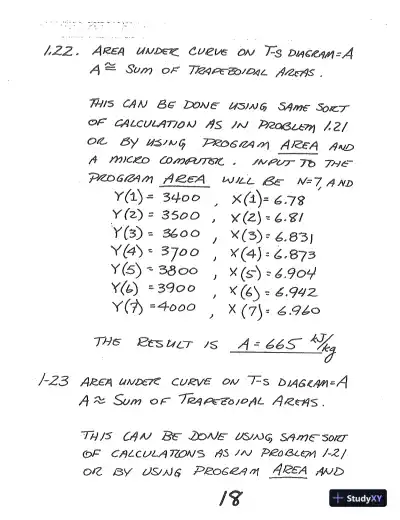 1.22. AREA UNDER CURVE ON T-S DIAGRAM = A
A ≅ SUM OF TRAPEZOIDAL AREAS.
THIS CAN BE DONE USING SAME SORT
OF CALCULATION AS IN PROBLEM 1.21
OR BY USING PROGRAM AREA AND
A MICRO COMPUTER. INPUT TO THE
PROGRAM AREA WILL BE N=7, AND
Y(1) = 3400 , X(1) = 6.78
Y(2) = 3500 , X(2) = 6.81
Y(3) = 3600 , X(3) = 6.831
Y(4) = 3700 , X(4) = 6.873
Y(5) = 3800 , X(5) = 6.904
Y(6) = 3900 , X(6) = 6.942
Y(7) = 4000 , X(7) = 6.960
THE RESULT IS A = 665 kJ/kg
1-23 AREA UNDER CURVE ON T-S DIAGRAM = A
A ≈ SUM OF TRAPEZOIDAL AREAS.
THIS CAN BE DONE USING SAME SORT
OF CALCULATIONS AS IN PROBLEM 1-21
OR BY USING PROGRAM AREA AND
18
+ StudyXY